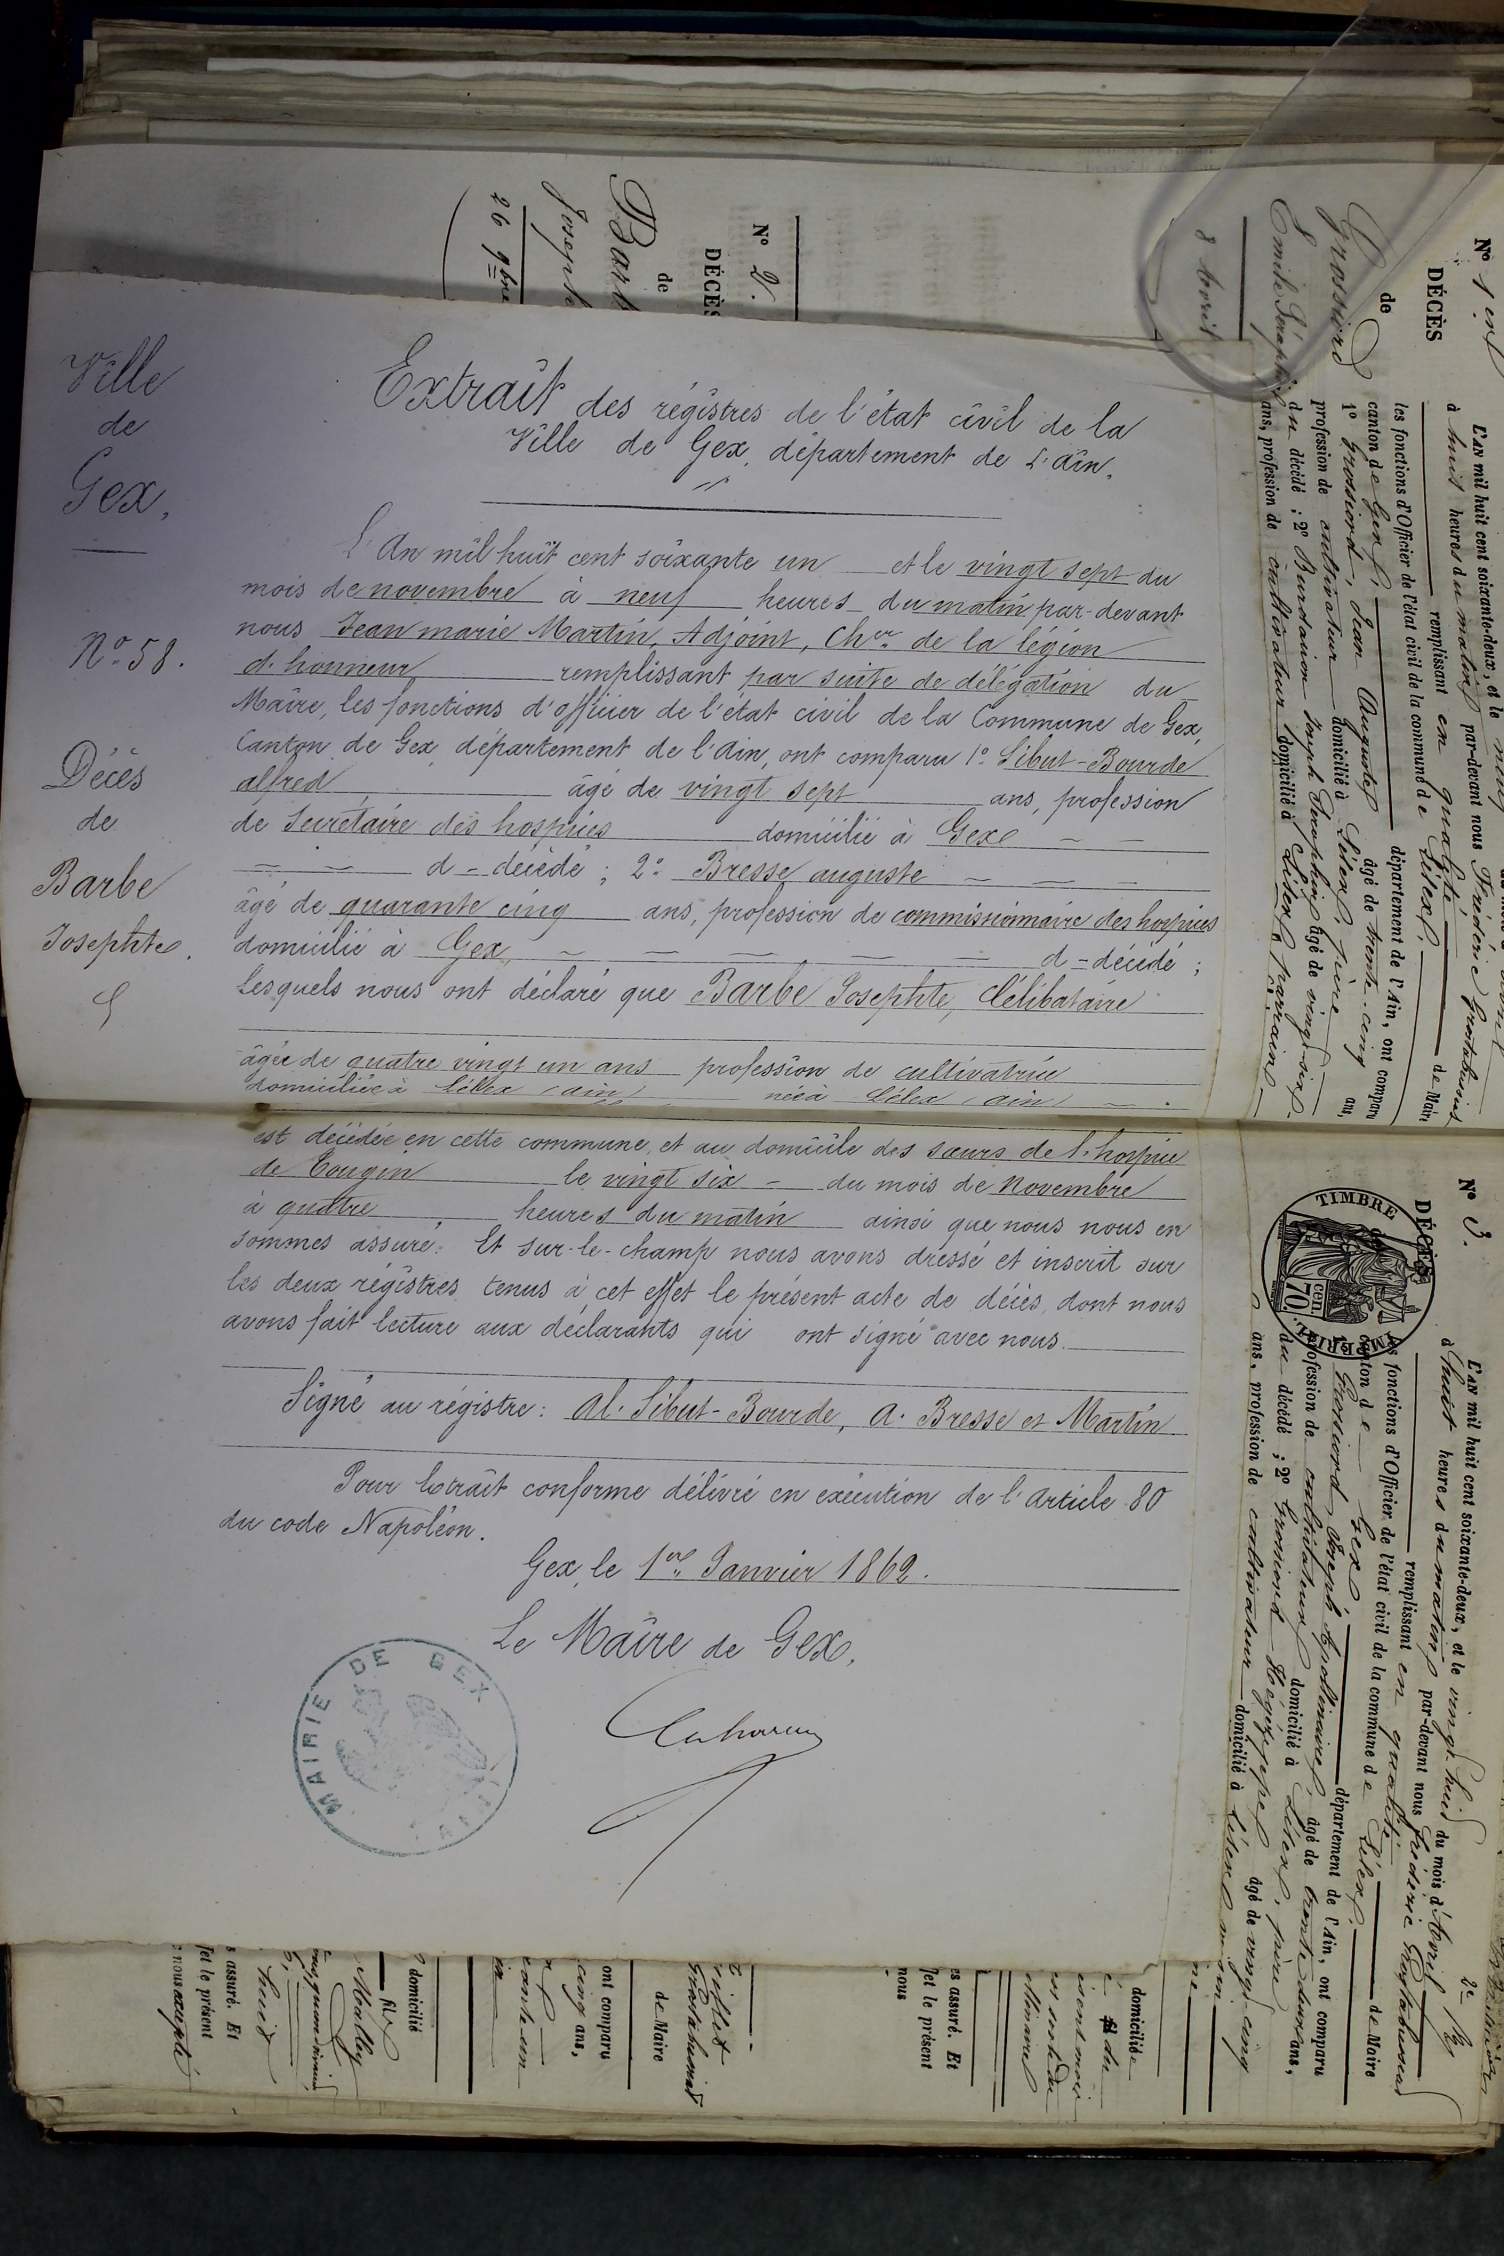 Ville
de
Gex.
N° 58.
Décès
de
Barbe
Josephte.
Extrait des régistres de l'état civil de la
Ville de Gex, département de L'ain.
L'An mil huit cent soixante un et le vingt sept du
mois de novembre à neuf heures du matin par-devant
nous Jean marie Martin, Adjoint, Cher de la légion
d'honneur remplissant par suite de délégation du
Maire, les fonctions d'officier de l'état civil de la Commune de Gex,
Canton de Gex, département de l'Ain, ont comparu 1° Sibut-Bourde
alfred âgé de vingt sept ans, profession
de Secrétaire des hospices domicilié à Gex
d - décédé ; 2° Bresse auguste
âgé de quarante cinq ans, profession de commissionnaire des hospices
domicilié à Gex, d - décédé ;
Lesquels nous ont déclaré que Barbe Josephte, Célibataire
âgée de quatre vingt un ans profession de cultivatrice
domiciliée à Lélex (ain) née à Lélex (ain)
est décédée en cette commune, et au domicile des sœurs de l'hospice
de Tougin le vingt six du mois de Novembre
à quatre heures du matin ainsi que nous nous en
sommes assuré. Et sur-le-champ nous avons dressé et inscrit sur
les deux régistres tenus à cet effet le présent acte de décès, dont nous
avons fait lecture aux déclarants qui ont signé avec nous.
Signé au régistre : Al. Sibut-Bourde, A. Bresse et Martin
Pour Extrait conforme délivré en exécution de l'Article 80
du code Napoléon.
Gex, le 1er Janvier 1862.
Le Maire de Gex,
MAIRIE DE GEX
N° 2.
DÉCÈS
de
Barb
Joseph
26 9bre
N° 1er
DÉCÈS
de
Grossiord
8 Avril
L'AN mil huit cent soixante-deux, et le neuf
à huit heures du matin par-devant nous Frédéric
remplissant en qualité de Maire
les fonctions d'Officier de l'état civil de la commune de Lélex,
canton de Gex, département de l'Ain, ont comparu
1° Grossiord, Jean Auguste âgé de trente-cinq ans,
profession de cultivateur domicilié à Lélex, père
du décédé ; 2° Joseph Séraphin âgé de vingt-six
ans, profession de cultivateur domicilié à Lélex, parrain
N° 3.
DÉCÈS
TIMBRE IMPÉRIAL
70 cen.
L'AN mil huit cent soixante-deux, et le vingt huit du mois d'Avril
à huit heures du matin par-devant nous Frédéric
remplissant en qualité de Maire
les fonctions d'Officier de l'état civil de la commune de Lélex,
canton de Gex, département de l'Ain, ont comparu
1° Grossiord Joseph Apollinaire, âgé de trente deux ans,
profession de cultivateur domicilié à Lélex, père
du décédé ; 2° Grossiord âgé de vingt-cinq
ans, profession de cultivateur domicilié à Lélex
domiciliée
du
es assuré. Et
jet le présent
nous
de Maire
ont comparu
cinq ans,
domicilié
fils
s assuré. Et
jet le présent
nous excepté